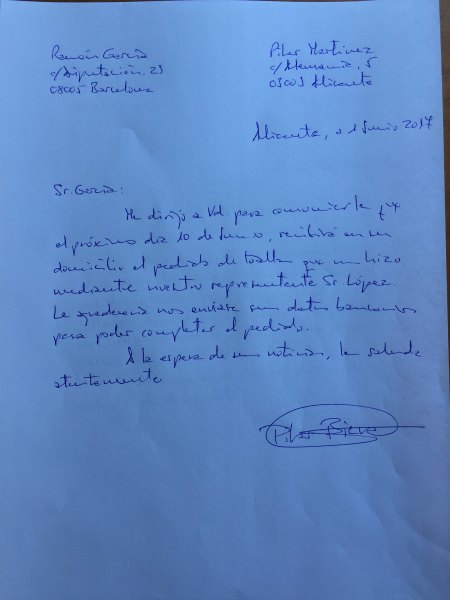 Ramón García
c/Diputación, 23
08005 Barcelona
Pilar Martínez
c/Alemania, 5
03003 Alicante
Alicante, a 1 Junio 2017
Sr. García:
Me dirijo a Vd. para comunicarle que
el próximo día 10 de Junio, recibirá en su
domicilio el pedido de toallas que nos hizo
mediante nuestro representante Sr. López.
Le agradecería nos enviase sus datos bancarios
para poder completar el pedido.
A la espera de sus noticias, le saluda
atentamente
Pilar